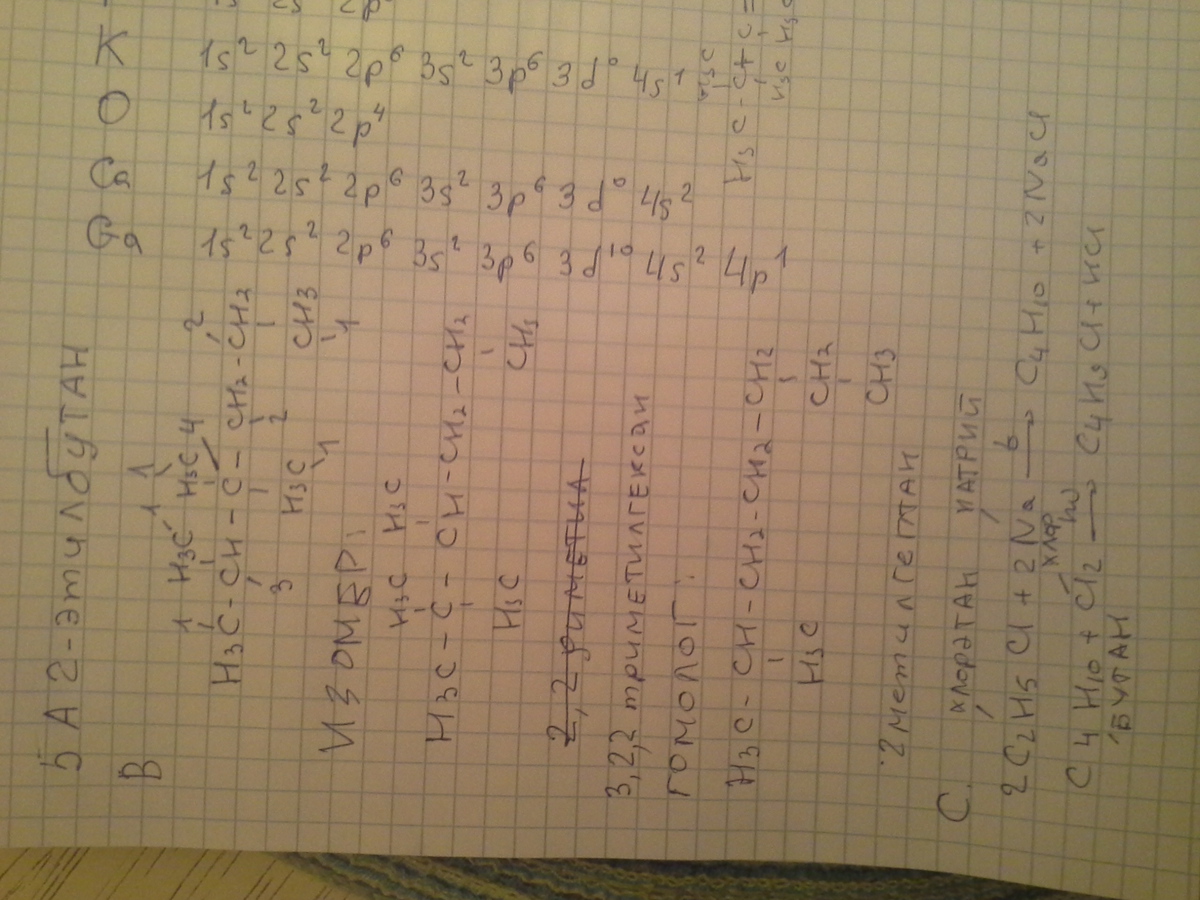 5 А 2-этилбутан
В 1 H₃C 1 H₃C 1 4 2
H₃C - CH - C - CH₂ - CH₂
3 H₃C 1 2 CH3 1
ИЗОМЕР:
H₃C H₃C
H₃C - C - CH - CH₂ - CH₂
H₃C CH₃
2,2 диметил
3,2,2 триметилгексан
гомолог:
H₃C - CH - CH₂ - CH₂ - CH₂
H₃C CH₂
CH3
2 метилгептан
С. хлорэтан натрий
2 C₂H5 Cl + 2 Na →б C₄H₁₀ + 2 NaCl
хлор hν
C₄H₁₀ + Cl₂ → C₄H₉Cl + HCl
БУТАН
1s 2s 2p
K 1s² 2s² 2p⁶ 3s² 3p⁶ 3d⁰ 4s¹
O 1s² 2s² 2p⁴
Ca 1s² 2s² 2p⁶ 3s² 3p⁶ 3d⁰ 4s²
Ga 1s² 2s² 2p⁶ 3s² 3p⁶ 3d¹⁰ 4s² 4p¹
H₃C
H₃C - C + C =
H₃C H₃C